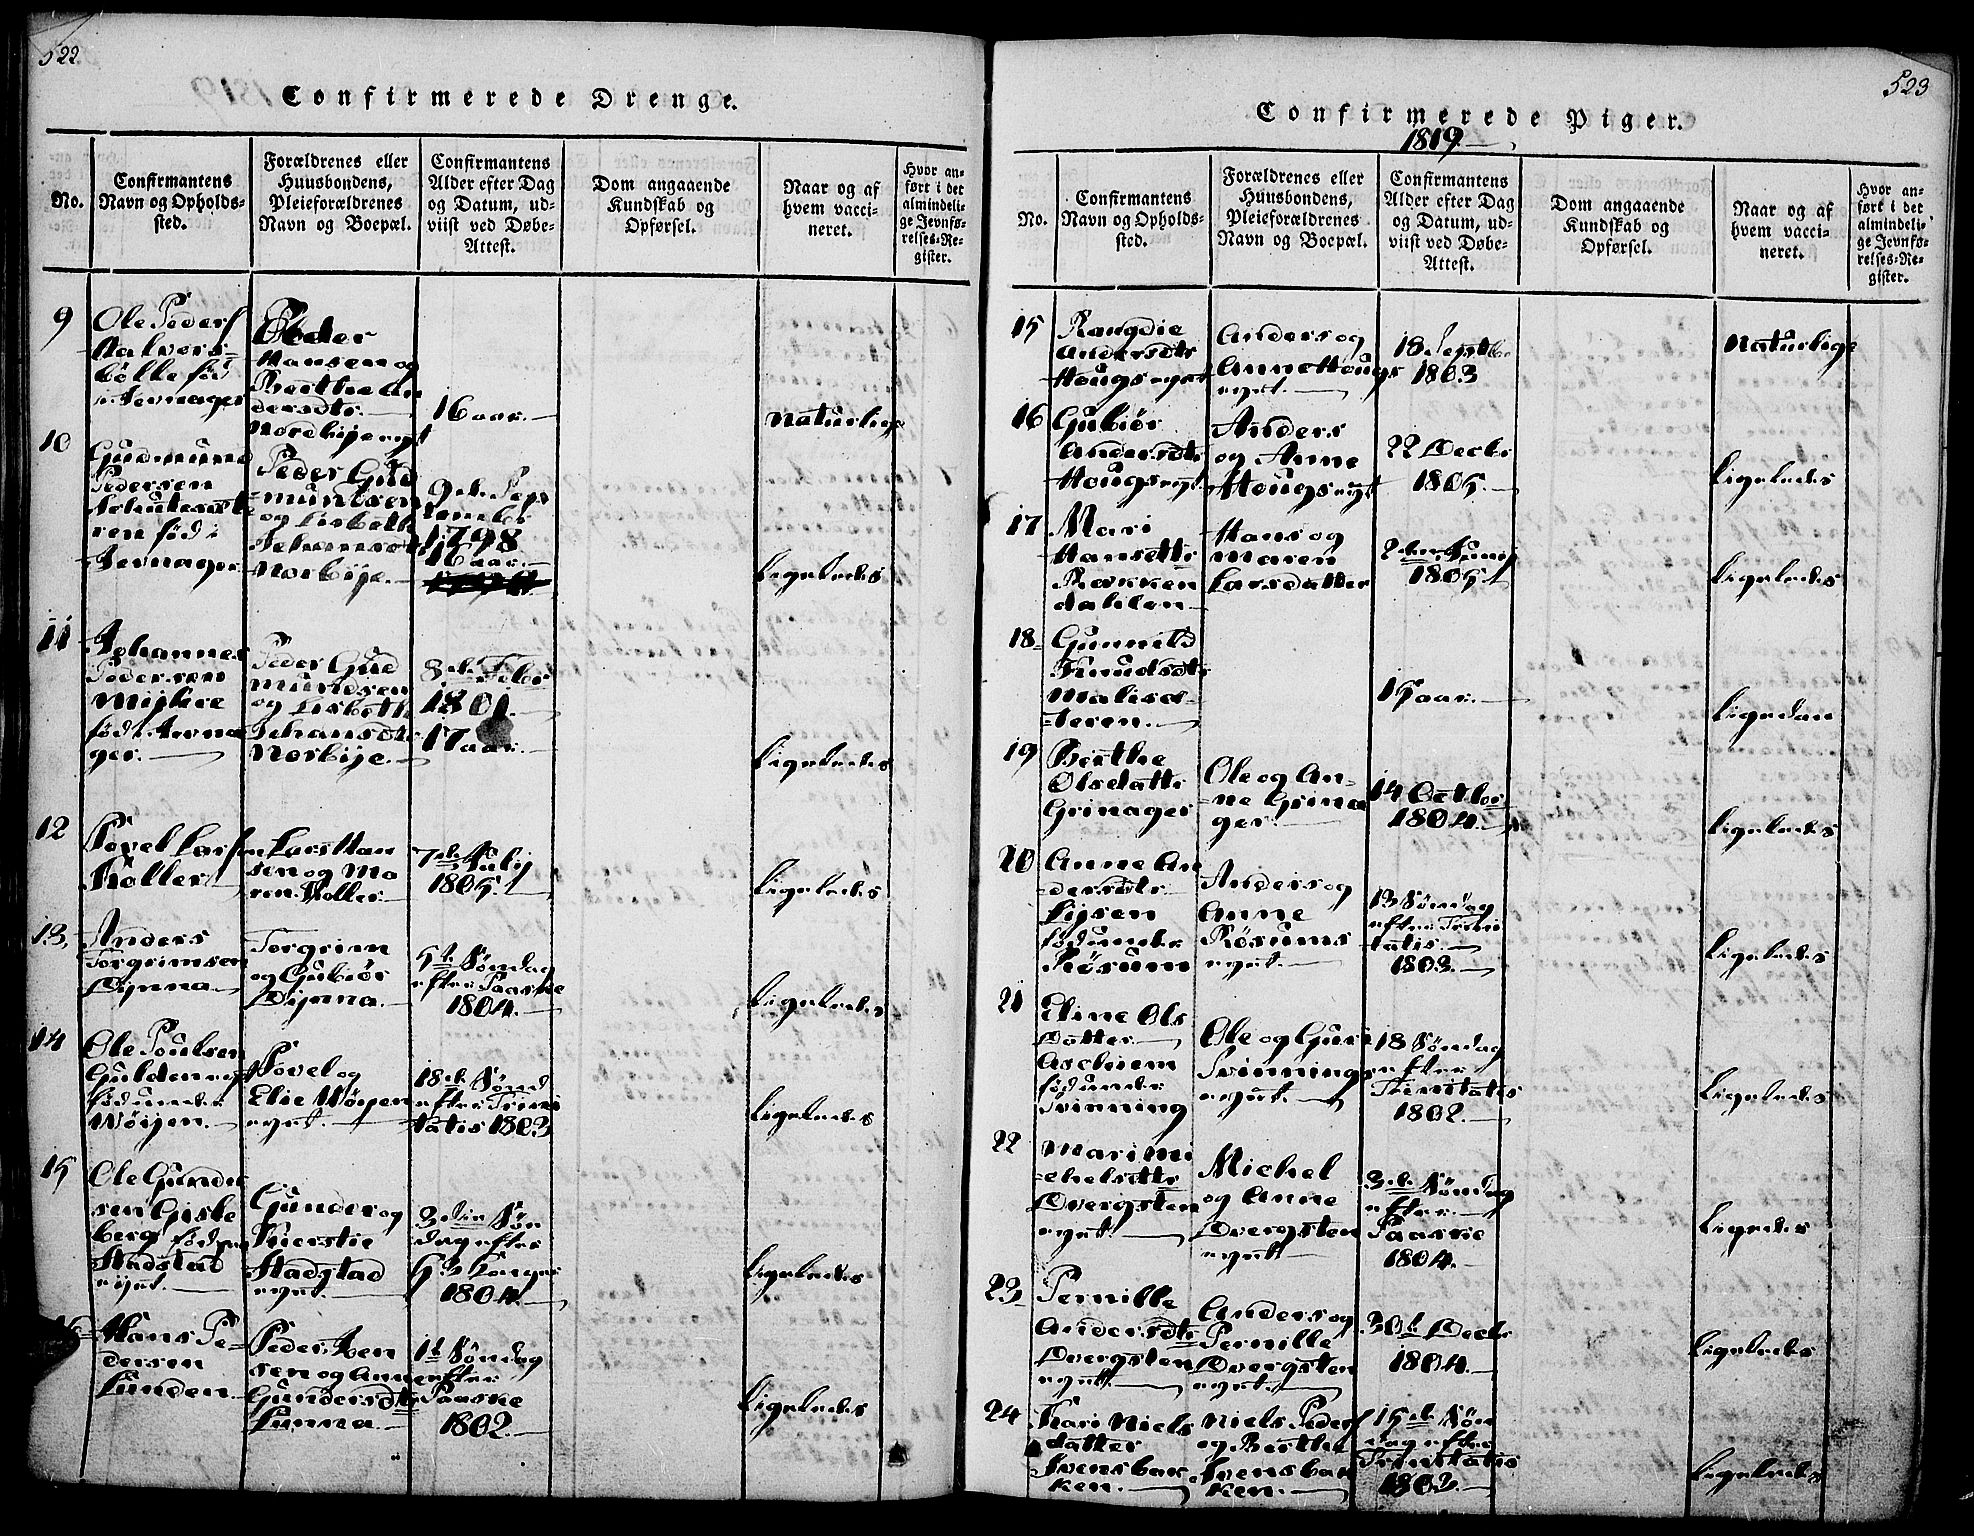 522.
Confirmerede Drenge.
No.
Confirmantens
Navn og Opholds-
sted.
Forældrenes eller
Huusbondens,
Pleieforældrenes
Navn og Boepæl.
Confirmantens
Alder efter Dag
og Datum, ud-
viist ved Døbe-
Attest.
Dom angaaende
Kundskab og
Opførsel.
Naar og af
hvem vacci-
neret.
Hvor an-
ført i det
almindeli-
ge Jevnfø-
relses-Re-
gister.
9
Ole Peders
Halvors-
bölle fød
i Jevnager
Peder
Hansen og
Berthe An
dersdtr.
Nordbye eyt
16 aar.
Naturlige
10
Gudmund
Pedersen
ren fød i
Jevnager
Peder Gud
mundsen
og Lisbeth
Johansdt
Norbije.
9de Sep
tember
1798
16 aar.
Ligeledes
11
Johannes
Pedersen
fød i Jevna
ger.
Peder Gud
mundsen
og Lisbeth
Johansdtr
Norbije.
8de Febr
1801.
17 aar.
Ligeledes
12
Povel Larsen
Koller
Lars Han
sen og Ma
ren Koller
7de Julij
1805.
Ligeledes
13.
Anders
Torgrimsen
Dynna
Torgrim
og Gubiør
Dynna.
5te Søndag
efter Paaske
1804.
Ligeledes
14
Ole Poulsen
Gulden eyt
fød under
Wöijen.
Povel og
Elie Wöyen
eyet.
18de Sønd
efter Trini
tatis 1803
Ligeledes
15
Ole Gunder
sen Giske
berg fød paa
Stadstad
eyet.
Gunder og
Kierstie
Stadstad
eyet.
3die Søn
dag efter
H. 3 Konger
1804.
Ligeledes
16
Hans Pe-
dersen
Lunden.
Peder Hen
sen og Anne
Gundersdtr
Lunna.
1te Søndag
efter
Paaske
1802.
Ligeledes
523
Confirmerede Piger.
1819.
No.
Confirmantens
Navn og Opholds-
sted.
Forældrenes eller
Huusbondens,
Pleieforældrenes
Navn og Boepæl.
Confirmantens
Alder efter Dag
og Datum, ud-
viist ved Døbe-
Attest.
Dom angaaende
Kundskab og
Opførsel.
Naar og af
hvem vacci-
neret.
Hvor an-
ført i det
almindeli-
ge Jevnfø-
relses-Re-
gister.
15
Rangdie
Andersdtr
Hougs eyet
Anders og
Anne Hougs
eyet.
18 Septbr
1803
Naturlige
16
Gubiör
Andersdtr
Hougs eyt.
Anders
og Anne
Hougs eyt
22 Decbr
1805.
Ligeledes
17
Mari
Hansdtr
dahlen
Hans og
Maren
Larsdatter
2den Junij
1805
Ligeledes
18.
Gunnild
Knudsdtr
Malisæ-
teren.
15 aar.
Ligedan
19
Berthe
Olsdattr
Grinager
Ole og An-
ne Grina
ger.
14 Octbr
1804.
Ligeledes
20
Anne An
dersdtr
Lijsen
fød under
Røsum
Anders og
Anne
Røsums
eyet.
13 Søndag
efter Trini
tatis.
1803.
Ligeledes
21
Eline Ols
Datter
Aschiem
fød under
Svinning
Ole og Guri
Svinnings
eyet.
18 Søndag
efter
Trinitatis
1802.
Ligeledes
22
Mari Mi
chelsdtr
Dvergsten
eyet.
Michel
og Anne
Dvergsten
eyet
3de Søndag
efter
Paaske
1804.
Ligeledes
23
Pernille
Andersdtr
Dvergsten
eyet.
Anders og
Pernille
Dvergsten
eyet.
30te Decbr
1804.
Ligeledes
24
Kari Niels
datter
Svensbak
ken.
Niels Peders
og Berthe
Svensbak
ken.
15de Søn
dag efter
Trinitatis
1803.
Ligeledes